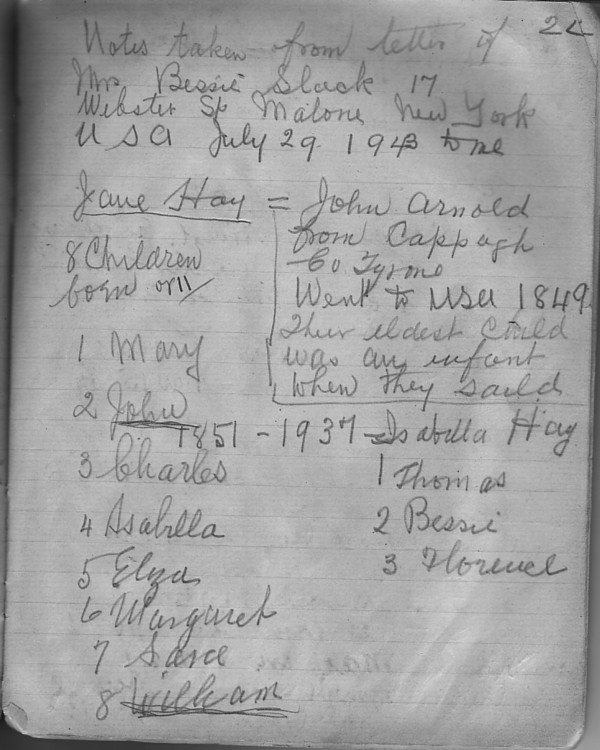 24
Notes taken from letter of
Mrs Bessie Slack 17
Webster St Malone New York
USA July 29 1943 to me
Jane Hay = John Arnold
from Cappagh
Co Tyrone
Went to USA 1849
Their eldest Child
was an infant
when they saild
8 Children
born or 11
1 Mary
2 John
1851 - 1937 = Isabella Hay
3 Charles
1 Thomas
4 Isabella
2 Bessie
5 Eliza
3 Florence
6 Margaret
7
8 William